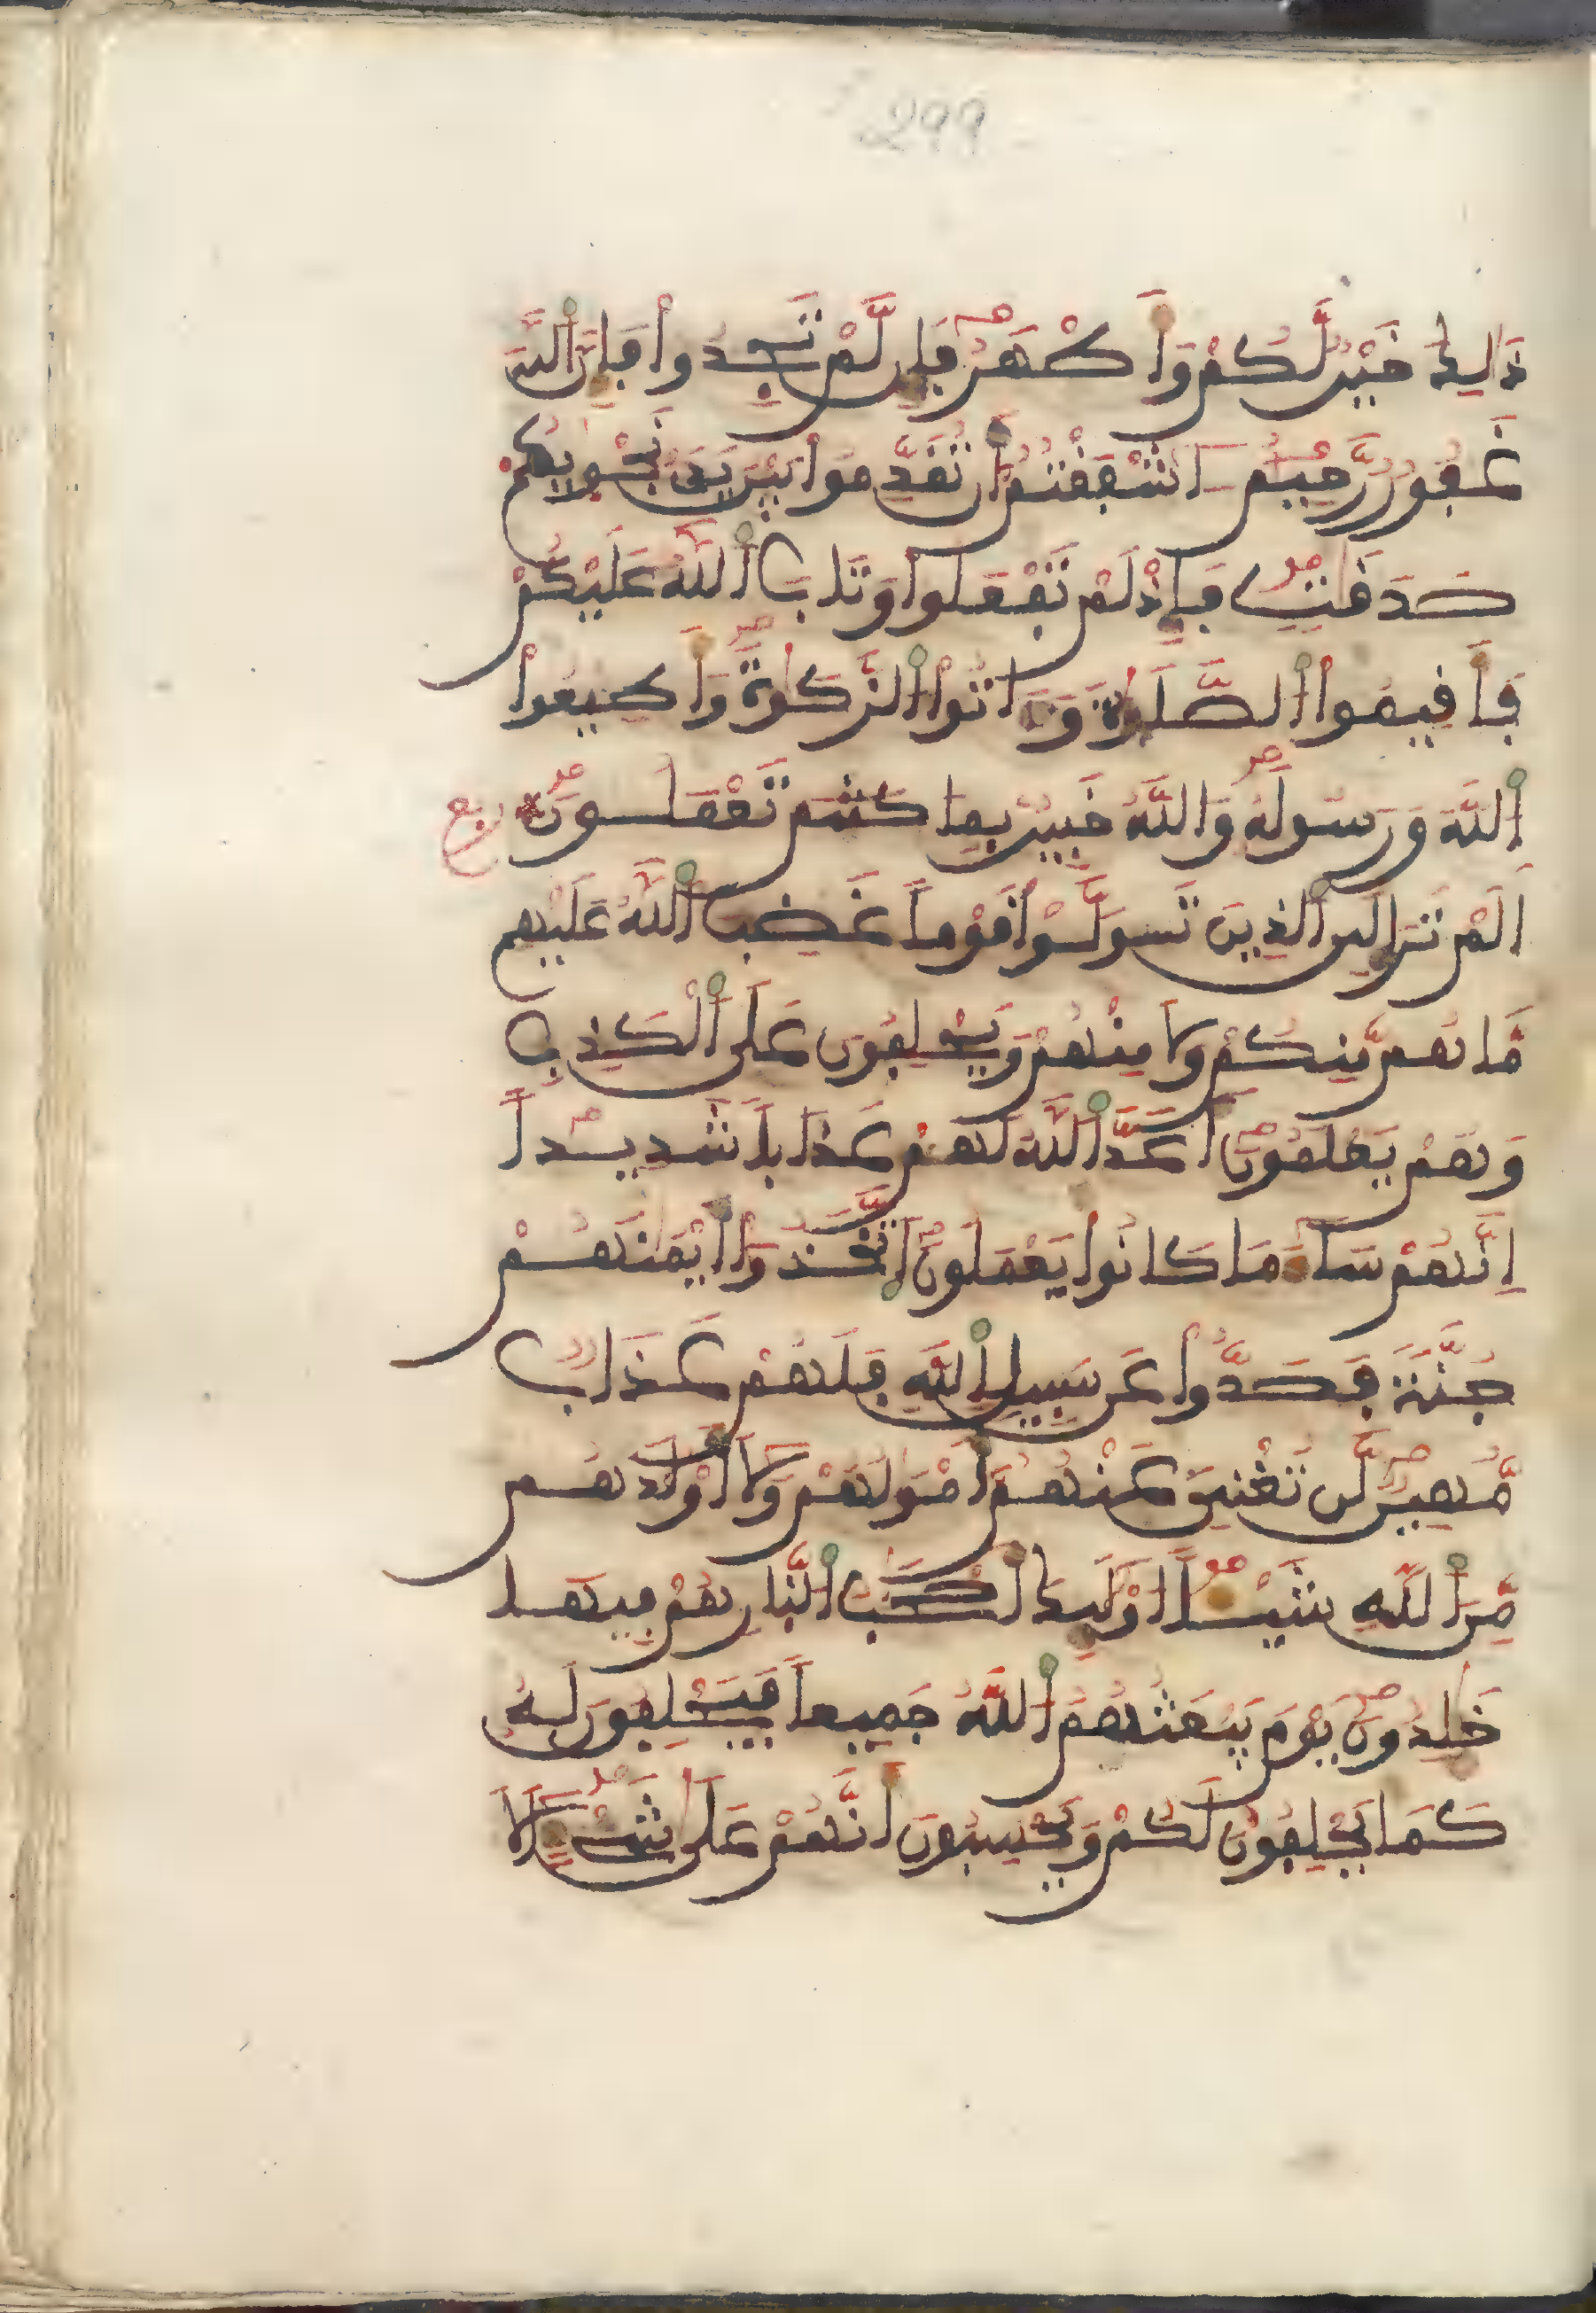 299
ذَٰلِكَ خَيْرٌ لَّكُمْ وَأَطْهَرُ فَإِن لَّمْ تَجِدُوا فَإِنَّ اللَّهَ
غَفُورٌ رَّحِيمٌ ءَاشْفَقْتُمُ أَن تُقَدِّمُوا بَيْنَ يَدَيْ نَجْوَيٰكُمْ
صَدَقَٰتٍ فَإِذْ لَمْ تَفْعَلُوا وَتَابَ اللَّهُ عَلَيْكُمْ
فَأَقِيمُوا الصَّلَوٰةَ وَءَاتُوا الزَّكَوٰةَ وَأَطِيعُوا
اللَّهَ وَرَسُولَهُ وَاللَّهُ خَبِيرٌ بِمَا تَعْمَلُونَ ربع
اَلَمْ تَرَ إِلَى الذِينَ تَوَلَّوْا قَوْماً غَضِبَ اللَّهُ عَلَيْهِم
مَّا هُم مِّنكُمْ وَلَا مِنْهُمْ وَيَحْلِفُونَ عَلَى الْكَذِبِ
وَهُمْ يَعْلَمُونَ أَعَدَّ اللَّهُ لَهُمْ عَذَاباً شَدِيداً
إِنَّهُمْ سَاءَ مَا كَانُوا يَعْمَلُونَ اتَّخَذُوا أَيْمَٰنَهُمْ
جُنَّةً فَصَدُّوا عَن سَبِيلِ اللَّهِ فَلَهُمْ عَذَابٌ
مُّهِينٌ لَّن تُغْنِيَ عَنْهُمُ أَمْوَٰلُهُمْ وَلَا أَوْلَٰدُهُم
مِّنَ اللَّهِ شَيْـًٔا أُوْلَٰئِكَ أَصْحَٰبُ النَّارِ هُمْ فِيهَا
خَٰلِدُونَ يَوْمَ يَبْعَثُهُمُ اللَّهُ جَمِيعاً فَيَحْلِفُونَ لَهُ
كَمَا يَحْلِفُونَ لَكُمْ وَيَحْسِبُونَ أَنَّهُمْ عَلَىٰ شَيْءٍ أَلَا